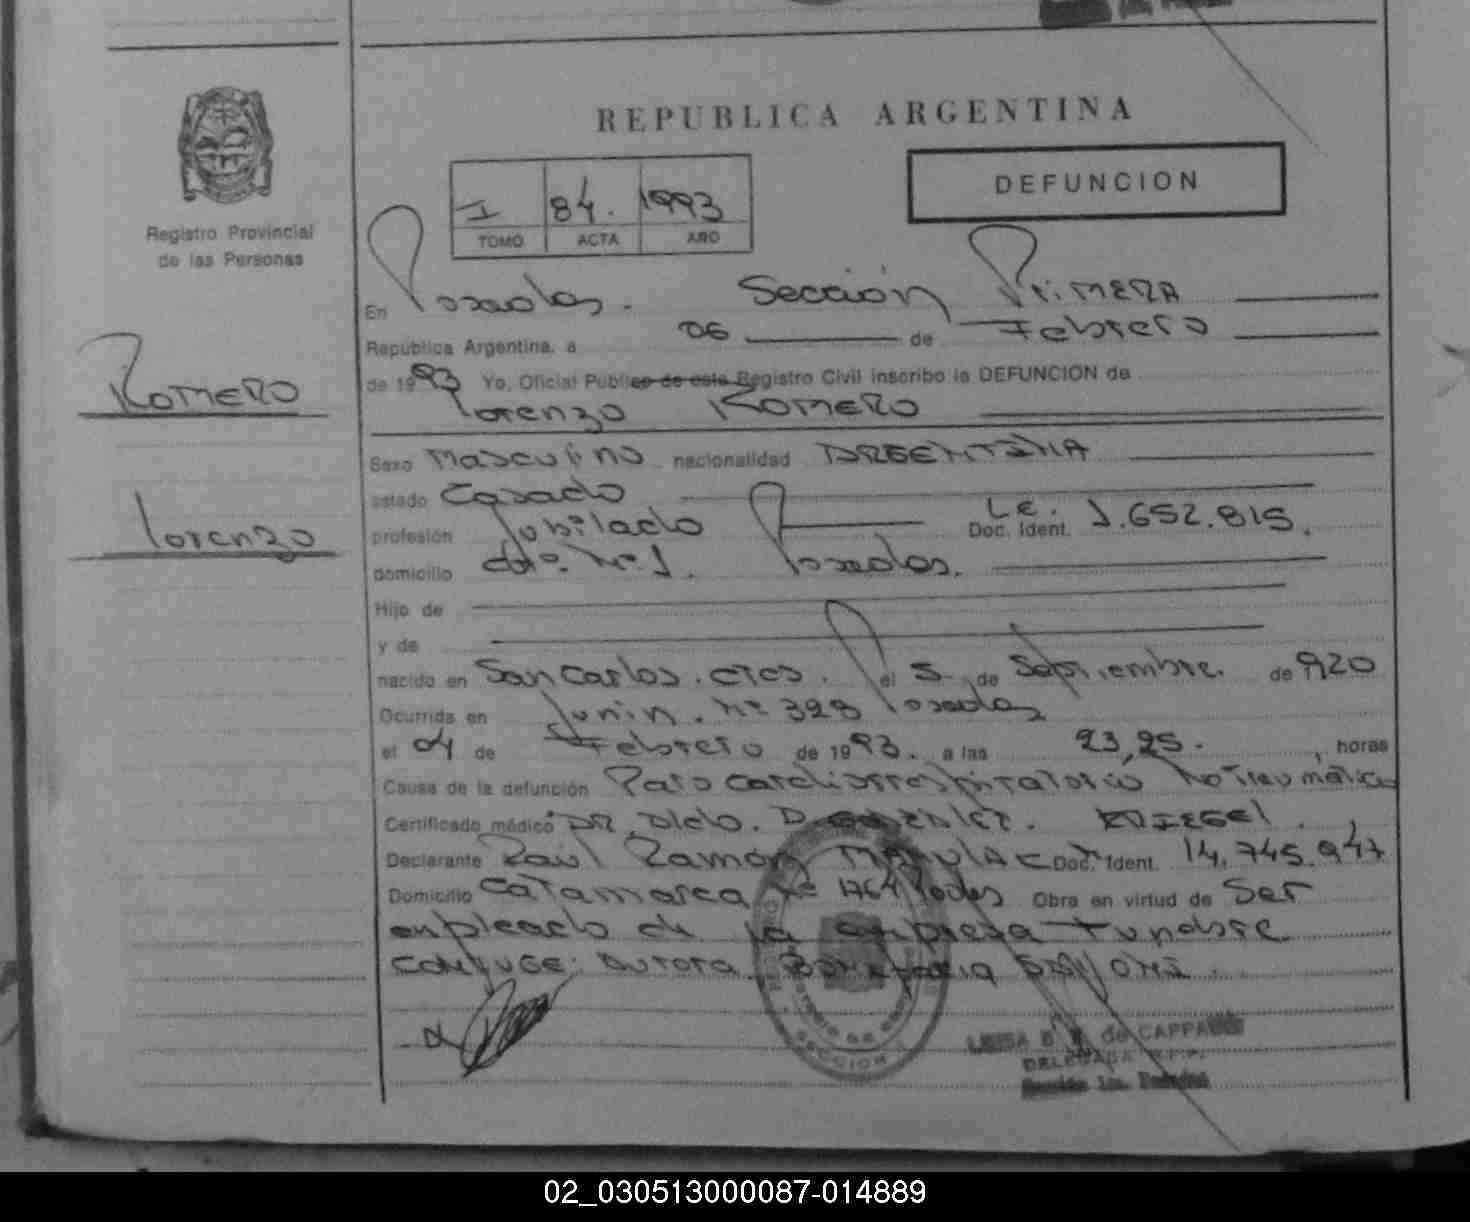 REPUBLICA ARGENTINA
DEFUNCION
I 84. 1993
TOMO ACTA AÑO
Registro Provincial
de las Personas
ROMERO
Lorenzo
En Posadas. Sección PriMERA
República Argentina, a 06 de Febrero
de 1993 Yo, Oficial Público de este Registro Civil inscribo la DEFUNCION de
Lorenzo ROMERO
Sexo Masculino nacionalidad ARGENTINA
estado Casado
profesión Jubilado Doc. Ident. L.E. 1.652.815.
domicilio Nº 1. Posadas.
Hijo de
y de
nacido en San Carlos. Ctes. el 5 de Septiembre. de 1920
Ocurrida en Junin. Nº 328 Posadas
el 04 de Febrero de 1993. a las 23,25. horas
Causa de la defunción Paro cardiorrespiratorio No Traumático
Certificado médico DR. D.
Declarante Raúl Ramón Doc. Ident. 14.745.947
Domicilio Catamarca Nº 1764 Posadas Obra en virtud de Ser
empleado de la empresa Funebre.
CONYUGE: Aurora
SECCION
de CAPPA
DELEGADA